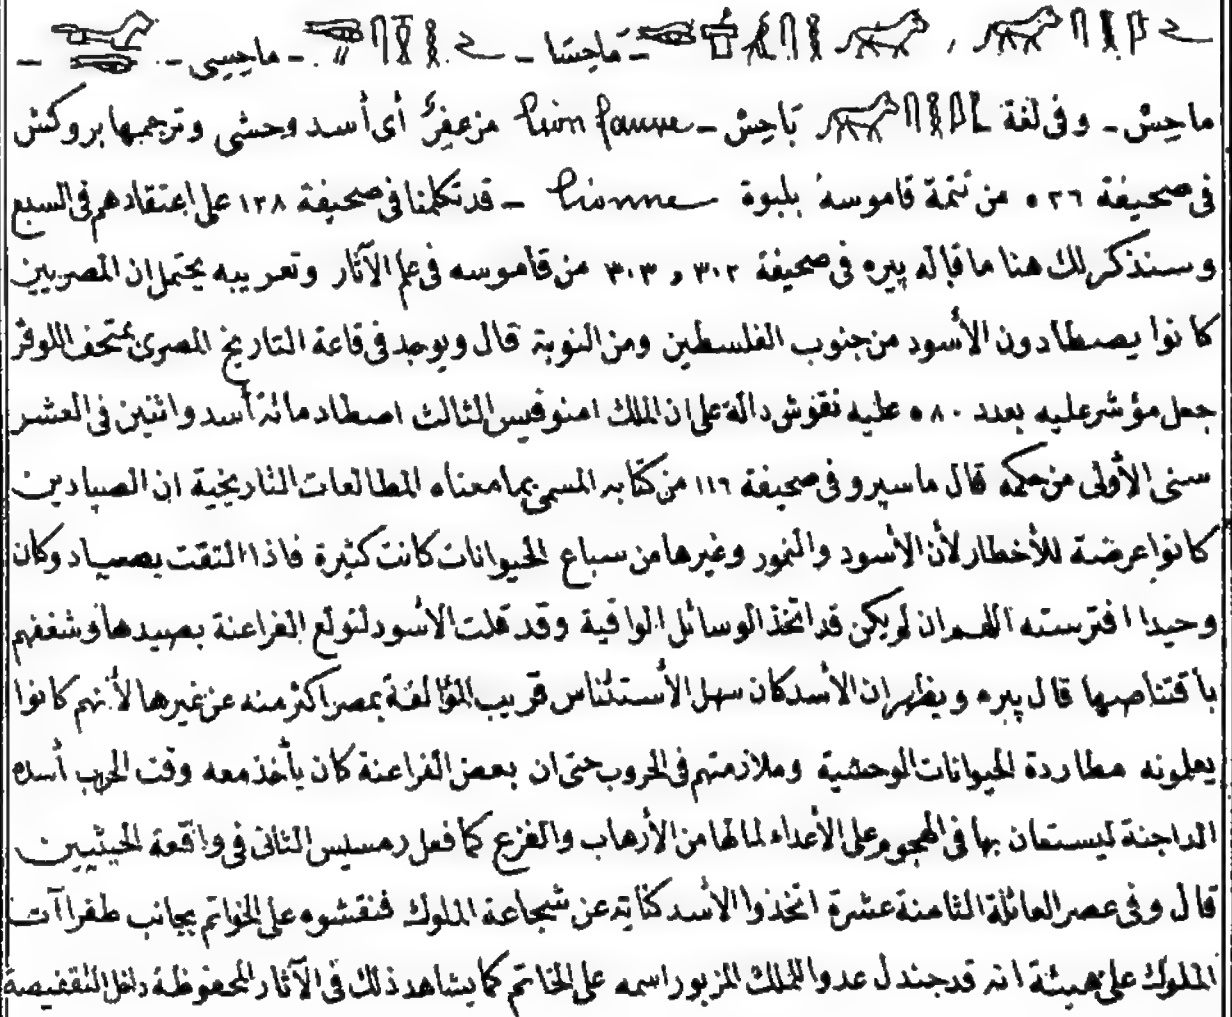 ماحِسَا - ماحِيسِى -
ماحِسْ - وفى لغة بَاحِسْ - lion fauve مزعفِرٌ أى أسد وحشى وترجمها بروكش
فى صحيفة ٥٢٦ من تتمة قاموسه بلبوة lionne - قد تكلمنا فى صحيفة ١٢٨ على اعتقادهم فى السبع
وسنذكر لك هنا ما قاله پيره فى صحيفة ٣٠٢ و ٣٠٣ من قاموسه فى علم الآثار وتعريبه يحتمل ان المصريين
كانوا يصطادون الأسود من جنوب الفلسطين ومن النوبة قال ويوجد فى قاعة التاريخ المصرى بمتحف اللوفر
جعل مؤشر عليه بعدد ٥٨٠ عليه نقوش دالة على ان الملك امنوفيس الثالث اصطاد مائة أسد واثنين فى العشر
سنى الأولى من حكمه قال ماسپرو فى صحيفة ١١٦ من كتابه المسمى بما معناه المطالعات التاريخية ان الصيادين
كانوا عرضة للأخطار لأن الأسود والنمور وغيرها من سباع الحيوانات كانت كثيرة فاذا التقت بصياد وكان
وحيدا افترسته اللهم ان لم يكن قد اتخذ الوسائل الواقية وقد قلت الأسود لتولع الفراعنة بصيدها وشغفهم
باقتناصها قال پيره ويظهر ان الأسد كان سهل الأستئناس قريب المؤالفة بمصر اكثر منه عن غيرها لأنهم كانوا
يعلمونه مطاردة الحيوانات الوحشية وملازمتهم فى الحروب حتى ان بعض الفراعنة كان يأخذ معه وقت الحرب أسده
الداجنة ليستعان بها فى الهجوم على الأعداء لمالها من الأرهاب والفزع كما فعل رمسيس الثانى فى واقعة الحيثيين
قال وفى عصر العائلة الثامنة عشرة اتخذوا الأسد كناية عن شجاعة الملوك فنقشوه على الخواتم بجانب طغراآت
الملوك على هيئة انه قد جندل عدوا للملك المزبور اسمه على الخاتم كما يشاهد ذلك فى الآثار المحفوظة داخل